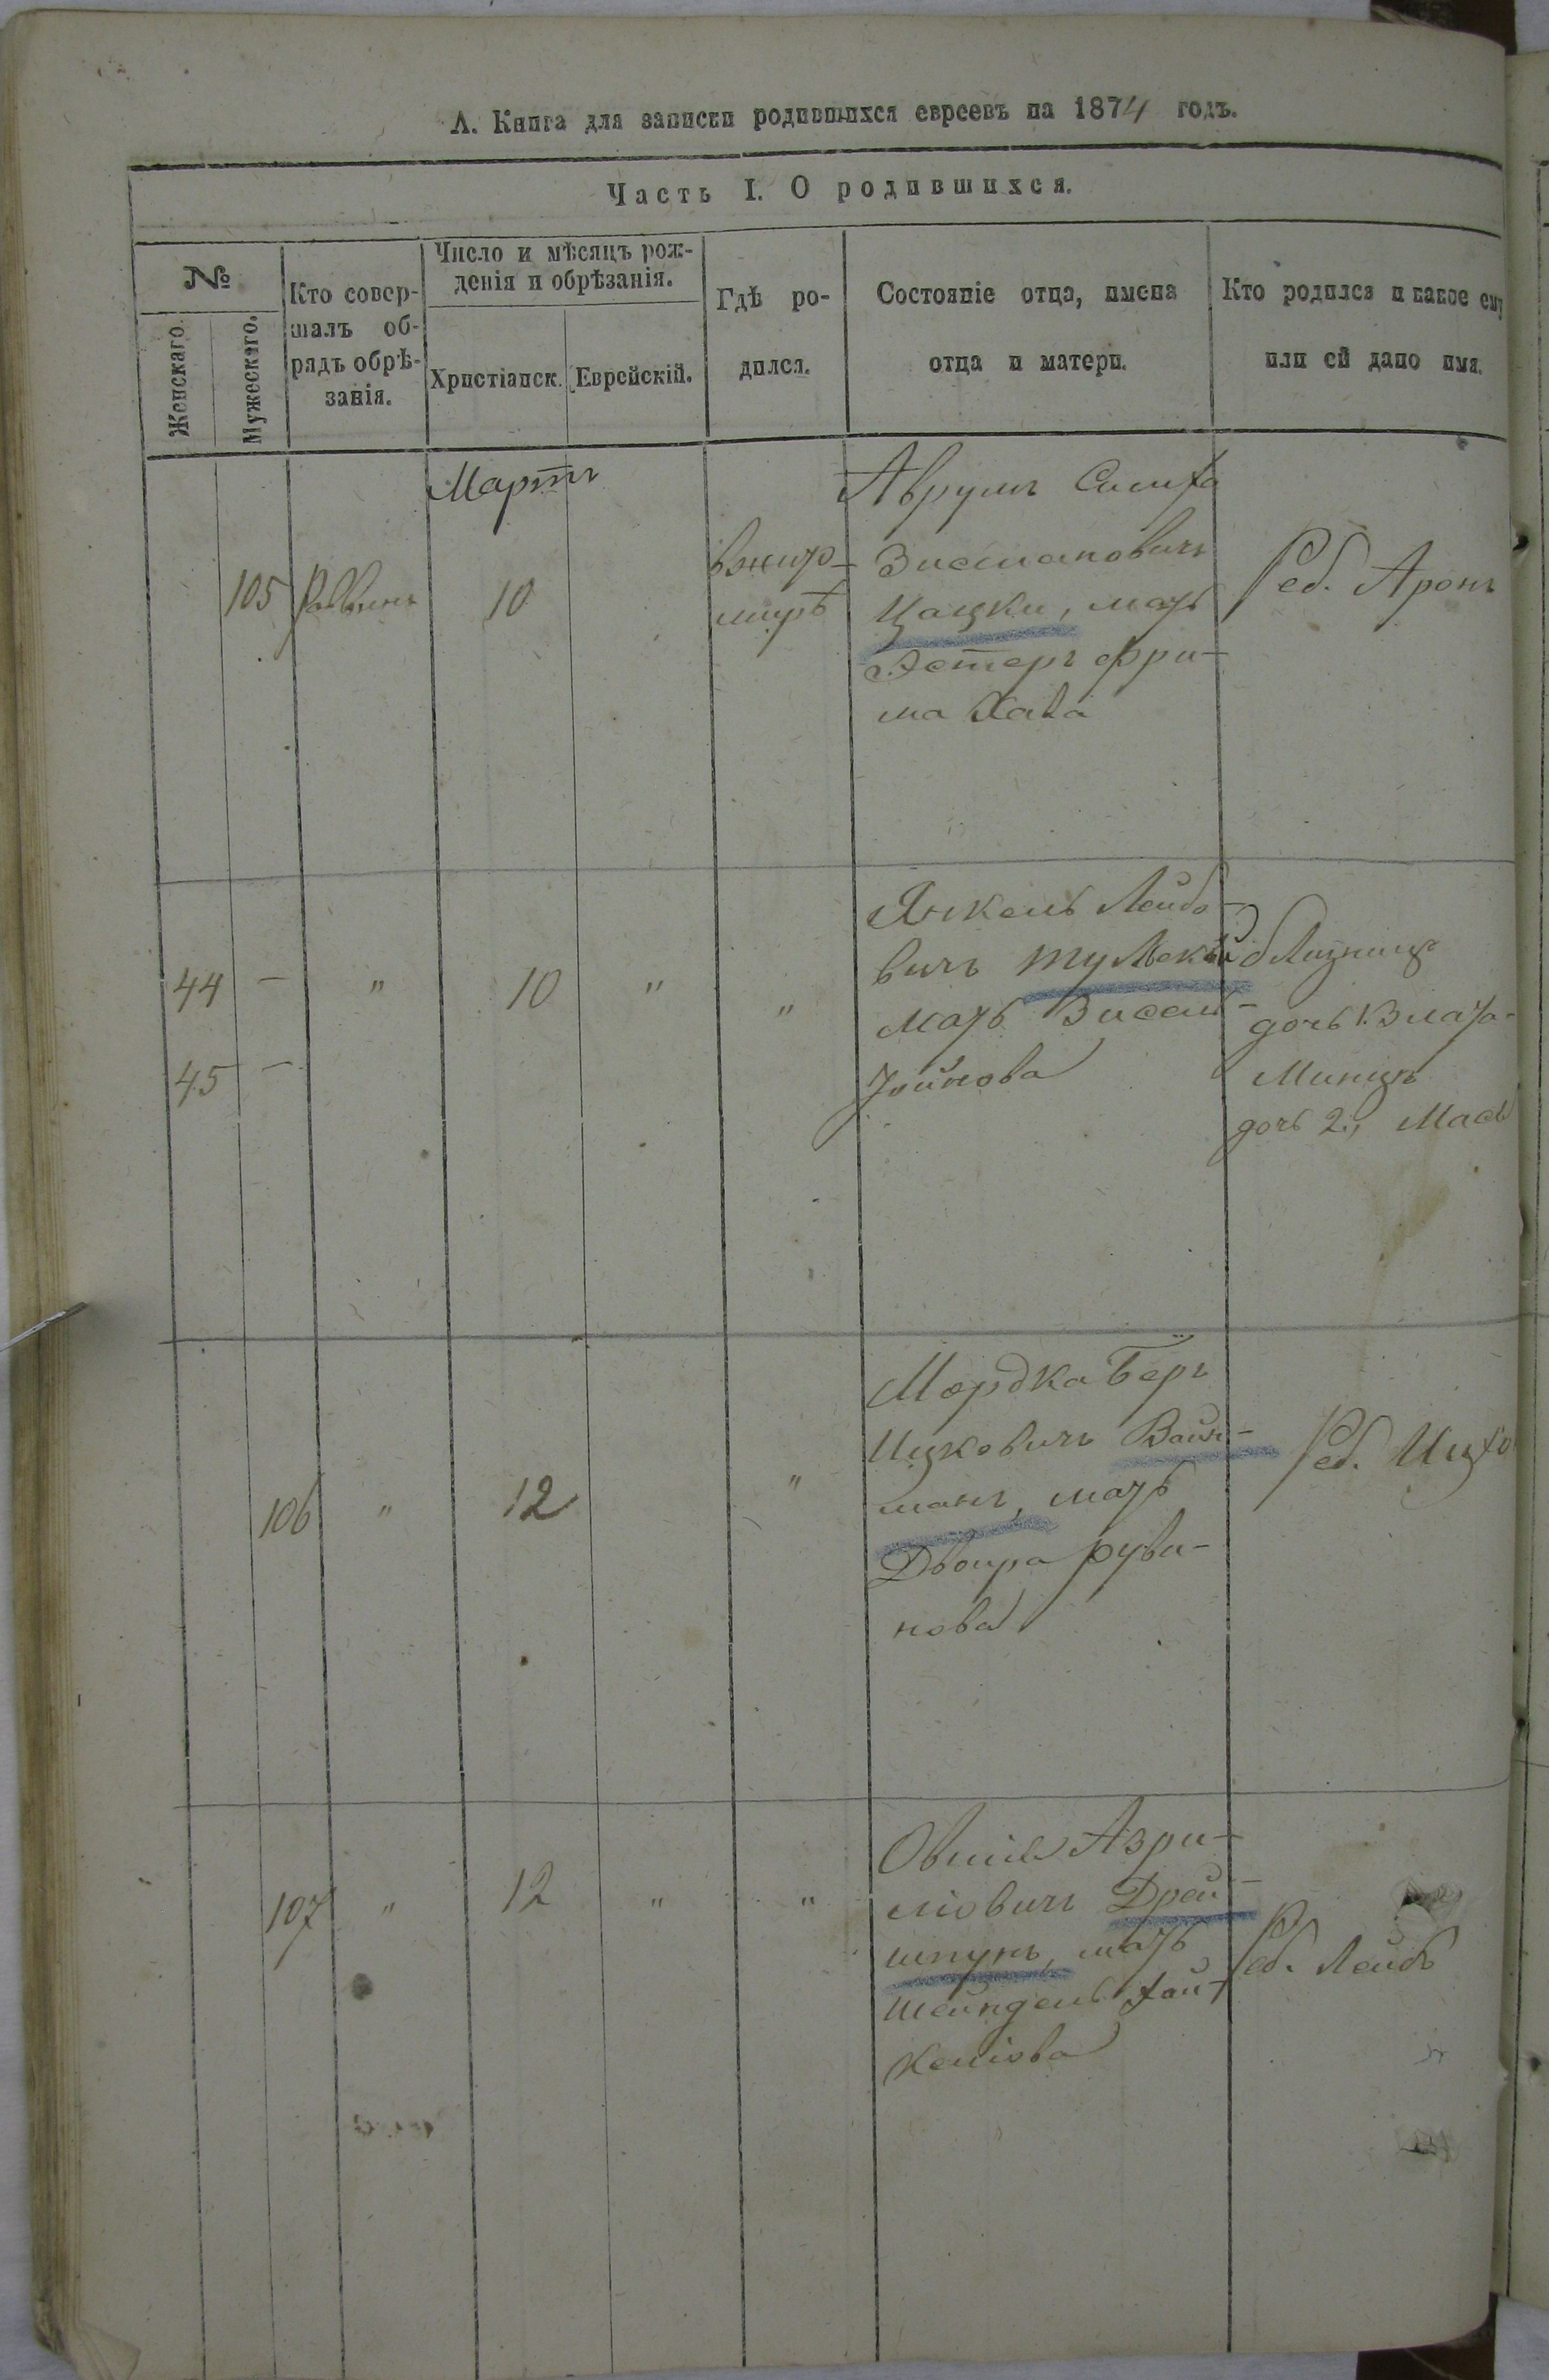 А. Книга для записки родившихся евреевъ на 1874 годъ.
Часть I. О родившихся.
№
Женскаго.
Мужескаго.
Кто совер-
шалъ об-
рядъ обрѣ-
занія.
Число и мѣсяцъ рож-
денія и обрѣзанія.
Христіанск.
Еврейскій.
Гдѣ ро-
дился.
Состояніе отца, имена
отца и матери.
Кто родился и какое ему
или ей дано имя.
Мартъ
105
Раввинъ
10
Вжито-
мирѣ
Аврумъ Симха
Зисмановичъ
Цацки, мать
Эстеръ Фри-
ма Хава
Реб. Аронъ
44 —
45 —
"
10
"
"
Янкель Лейбо-
вичъ
мать Зисель
Хоинова
близницы
дочь 1
дочь 2., Мася
106
"
12
"
Мордка Беръ
Ицковичъ Вайн-
манъ, мать
Двоира Руви-
нова
Реб. Ицхо
107
"
12
"
"
Овшія Азри-
ліовичъ Дрей-
шпунъ, мать
Шейндель Хай-
келіова
Реб. Лейбъ